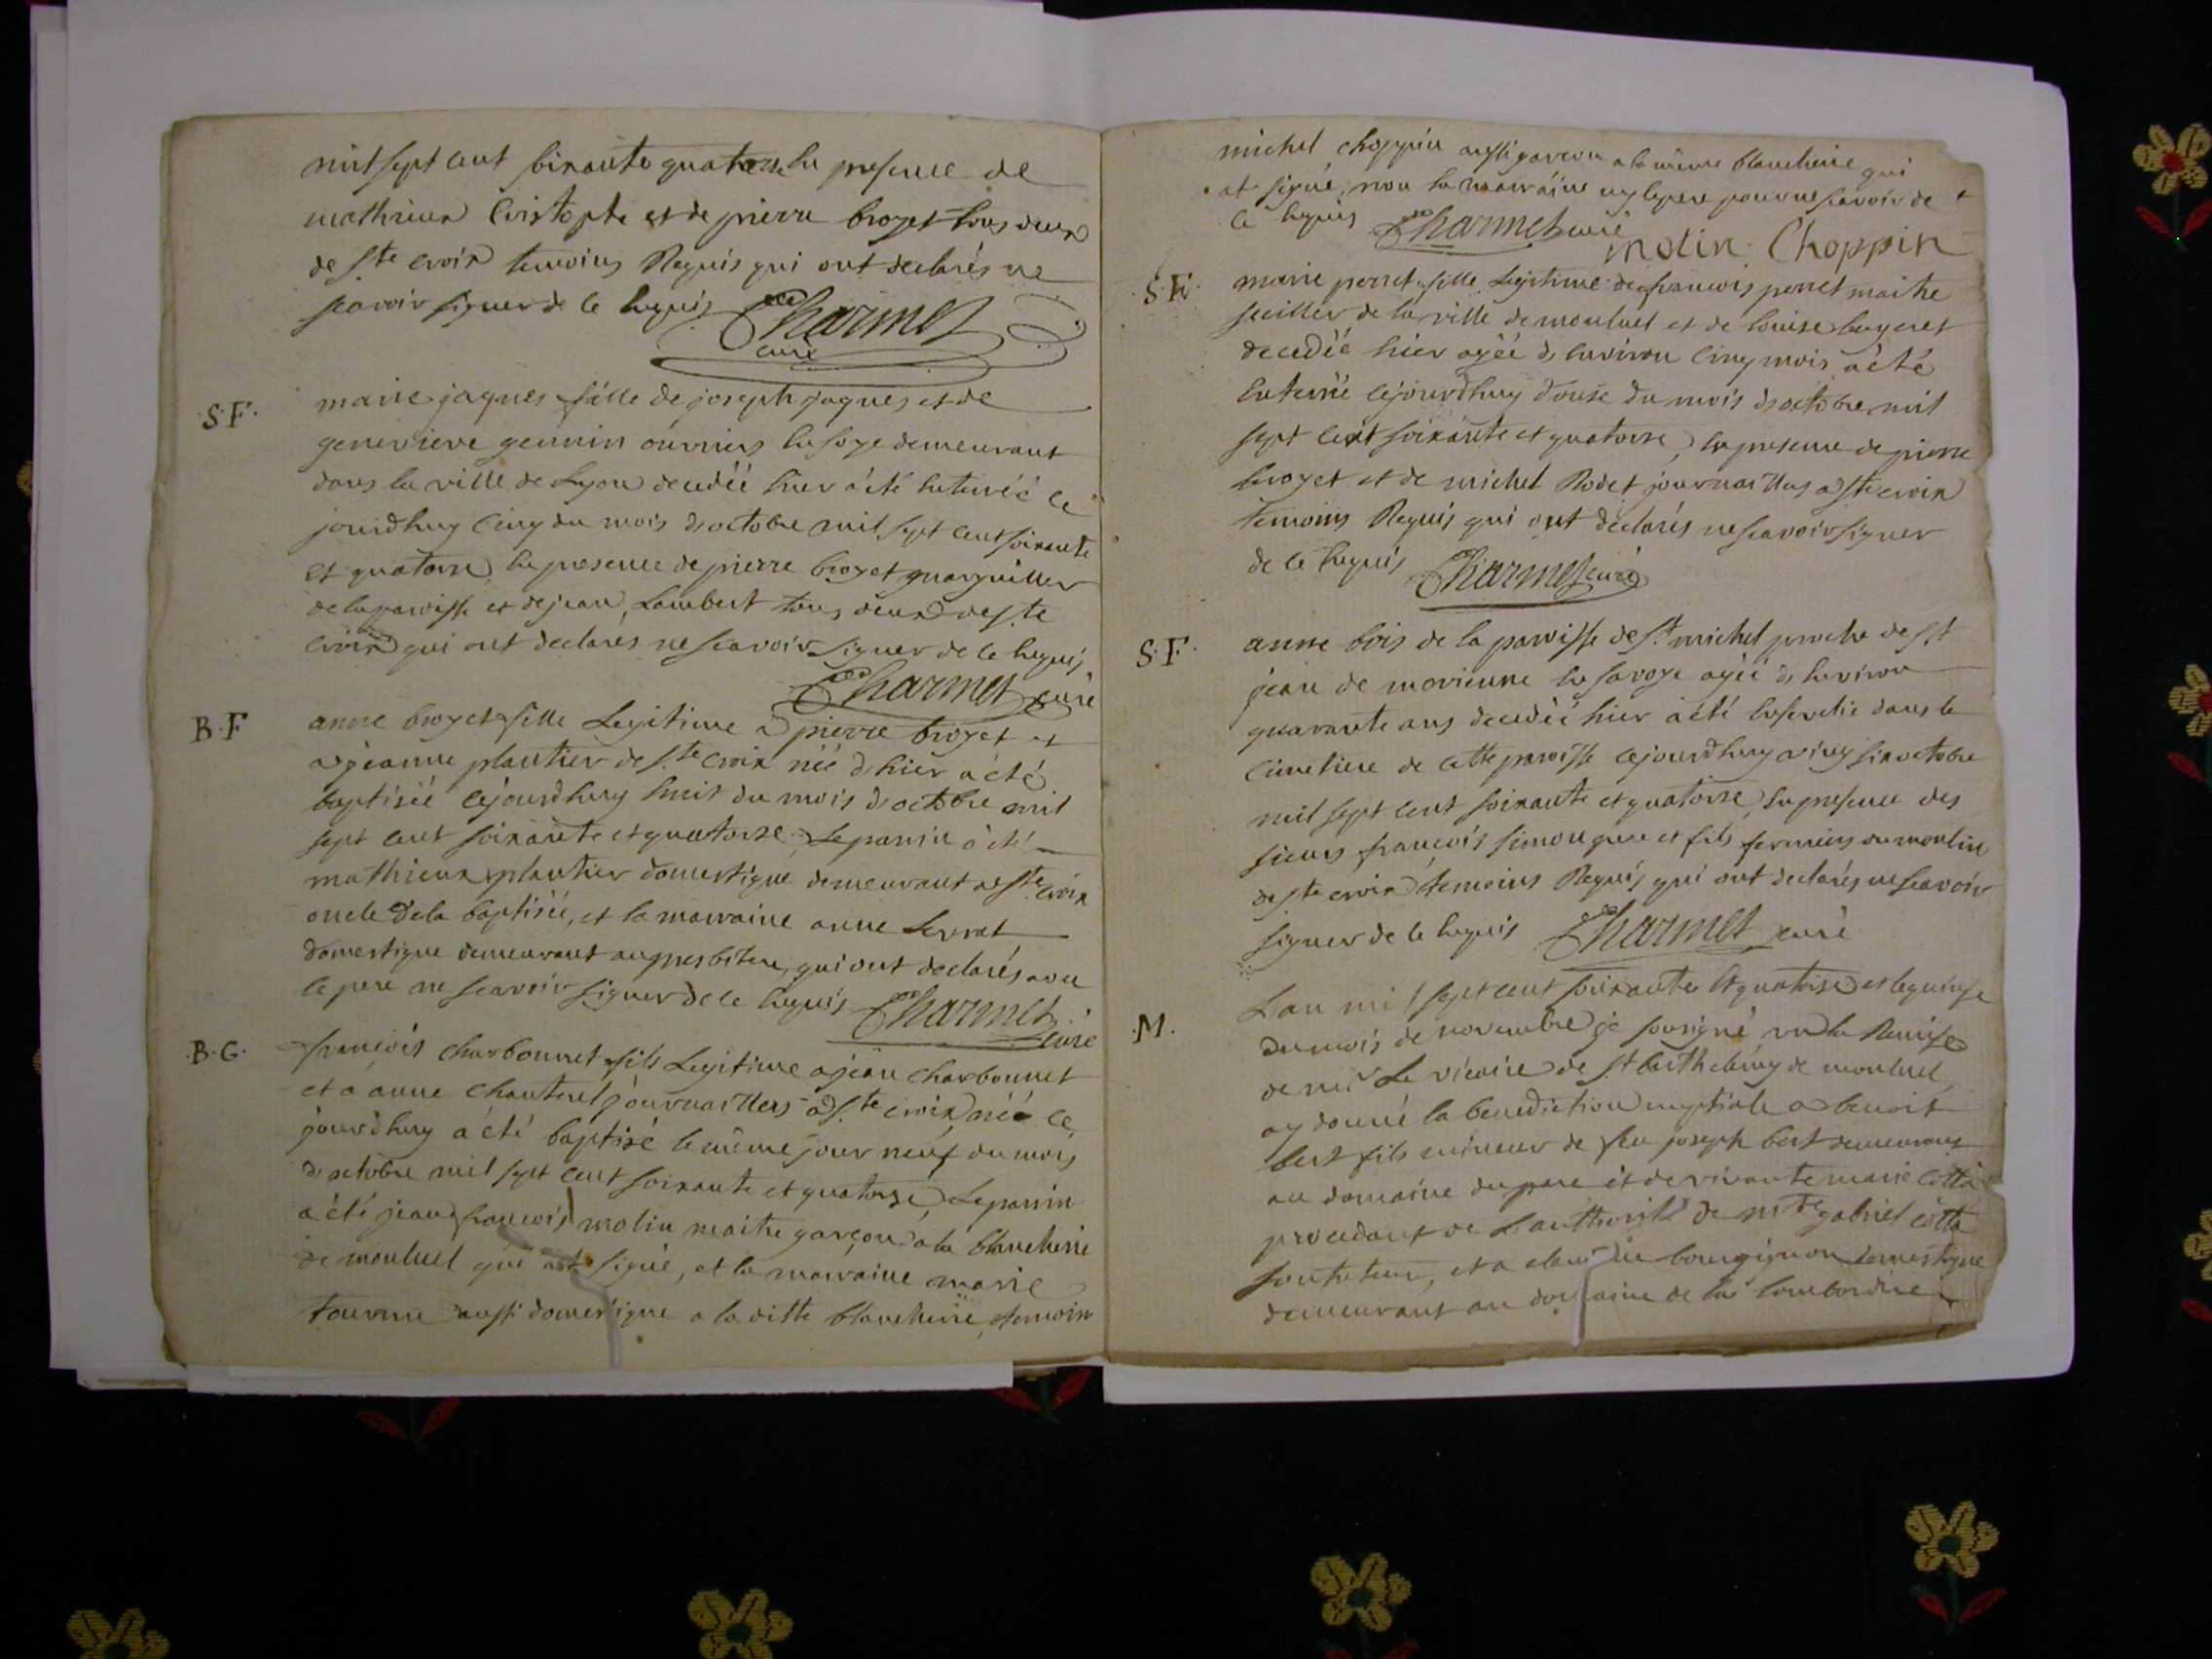 mil sept cent soixante quatorze en presence de
mathieux Cristophe et de pierre broyet tous deux
de ste croix temoins Requis qui ont declarés ne
scavoir signer de ce Enquis Charmet
curé
S.F. marie jaques fille de joseph jaques et de
genevieve gennin ouvriers en soye demeurant
dans la ville de Lyon decedéé hier a été enterréé ce
jourd'huy cinq du mois d'octobre mil sept cent soixante
et quatorze, en presence de pierre broyet marguillier
de la paroisse et de jean Lambert tous deux de ste
croix qui ont declarés ne scavoir signer de ce Enquis
Charmet curé
B.F anne broyet fille Legitime a pierre broyet et
a jeanne plantier de ste croix néé d'hier a été
baptiséé cejourd'huy huit du mois d'octobre mil
sept cent soixante et quatorze, Le parrin a été
mathieux plantier domestique demeurant a ste croix
oncle de la baptiséé, et la marraine anne Serrat
domestique demeurant au presbitere, qui ont declarés avec
le pere ne scavoir signer de ce Enquis Charmet
curé
B.G. francois charbonnet fils Legitime a jean charbonnet
et a anne chanterel journaillers a ste croix néé ce
jourd'huy a été baptisé le même jour neuf du mois
d'octobre mil sept cent soixante et quatorze, Le parrin
a été jean francois molin maitre garçon a la blancherie
de montluel qui at signé, et la marraine marie
tournu aussi domestique a la ditte blancherie, temoin
michel choppin aussi garcon a la même blancherie qui
at signé, non la marraine ny le pere pour ne scavoir de
ce Enquis Charmet curé
molin Choppin
S.F. marie perret fille Legitime de francois perret maitre
de la ville de montluel et de louise bugeret
decedéé hier agéé d'environ cinq mois a été
Enterréé cejourd'huy douse du mois d'octobre mil
sept cent soixante et quatorze, en presence de pierre
broyet et de michel Rodet journaillers a ste croix
temoins Requis qui ont declarés ne scavoir signer
de ce Enquis Charmet curé
S.F. anne bois de la paroisse de st michel proche de st
jean de morienne en savoye agéé d'environ
quarante ans decedéé hier a été Ensevelie dans le
cimetiere de cette paroisse cejourd'huy vingt six octobre
mil sept cent soixante et quatorze, En presence des
sieurs francois simon pere et fils fermiers du moulin
de ste croix temoins Requis qui ont declarés ne scavoir
signer de ce Enquis Charmet curé
M. L'an mil sept cent soixante Et quatorze et le quinze
du mois de novembre je sousigné vu la Remise
de mr Le vicaire de st barthelemy de montluel
ay donné la benediction nuptiale a benoit
bert fils mineur de feu joseph bert demeurant
au domaine du parc et de vivante marie cotta
procedant de L'authorité de gabriel cotta
son tuteur, et a claudine bourgignon domestique
demeurant au domaine de la lombardiere